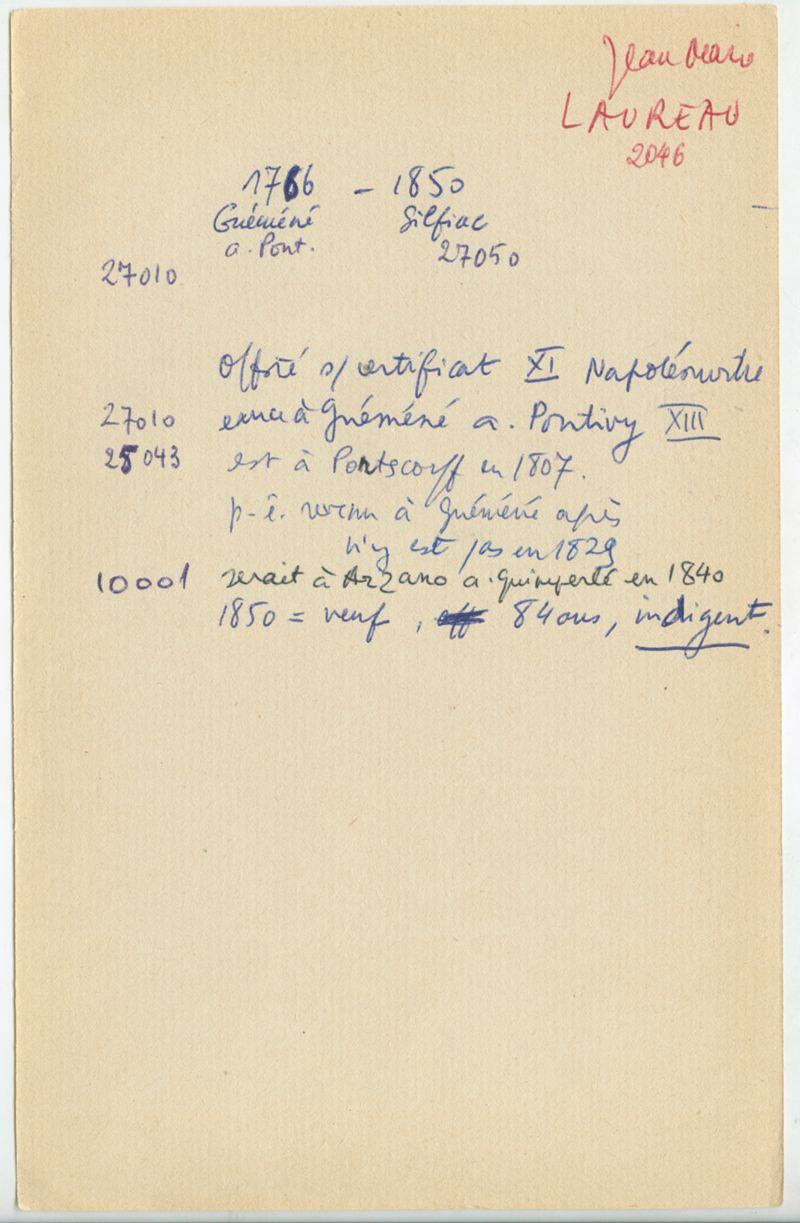 Jean Marie
LAUREAU
2046
1766 – 1850
Guéméné Silfiac
a. Pont. 27050
27010
Offsté s/ certificat XI Napoléonville
27010 exerce à Guéméné a. Pontivy XIII
25043 est à Pontscorff en 1807.
p-ê. revenu à Guéméné après
n'y est pas en 1829
10001 serait à Arzano a. Quimperlé en 1840
1850 = veuf, 84 ans, indigent.